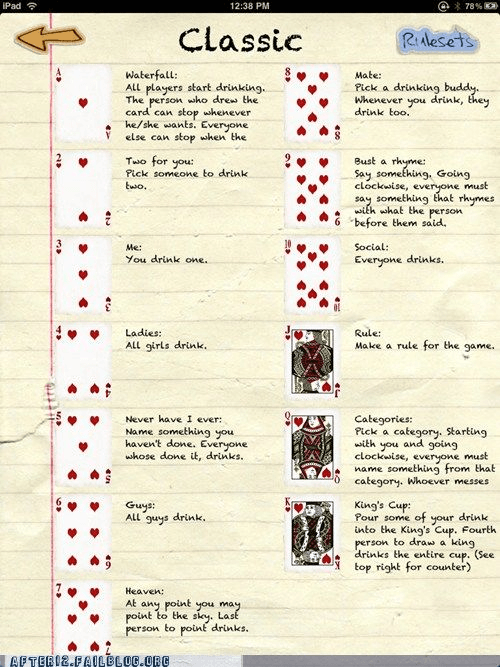 iPad 12:38 PM 78%
Classic
Rulesets
A
Waterfall:
All players start drinking.
The person who drew the
card can stop whenever
he/she wants. Everyone
else can stop when the
A
2
Two for you:
Pick someone to drink
two.
2
3
Me:
You drink one.
3
4
Ladies:
All girls drink.
4
5
Never have I ever:
Name something you
haven't done. Everyone
whose done it, drinks.
5
6
Guys:
All guys drink.
6
7
Heaven:
At any point you may
point to the sky. Last
person to point drinks.
7
8
Mate:
Pick a drinking buddy.
Whenever you drink, they
drink too.
8
9
Bust a rhyme:
Say something. Going
clockwise, everyone must
say something that rhymes
with what the person
before them said.
9
10
Social:
Everyone drinks.
10
J
Rule:
Make a rule for the game.
J
Q
Categories:
Pick a category. Starting
with you and going
clockwise, everyone must
name something from that
category. Whoever messes
Q
K
King's Cup:
Pour some of your drink
into the King's Cup. Fourth
person to draw a king
drinks the entire cup. (See
top right for counter)
K
AFTER12.FAILBLOG.ORG